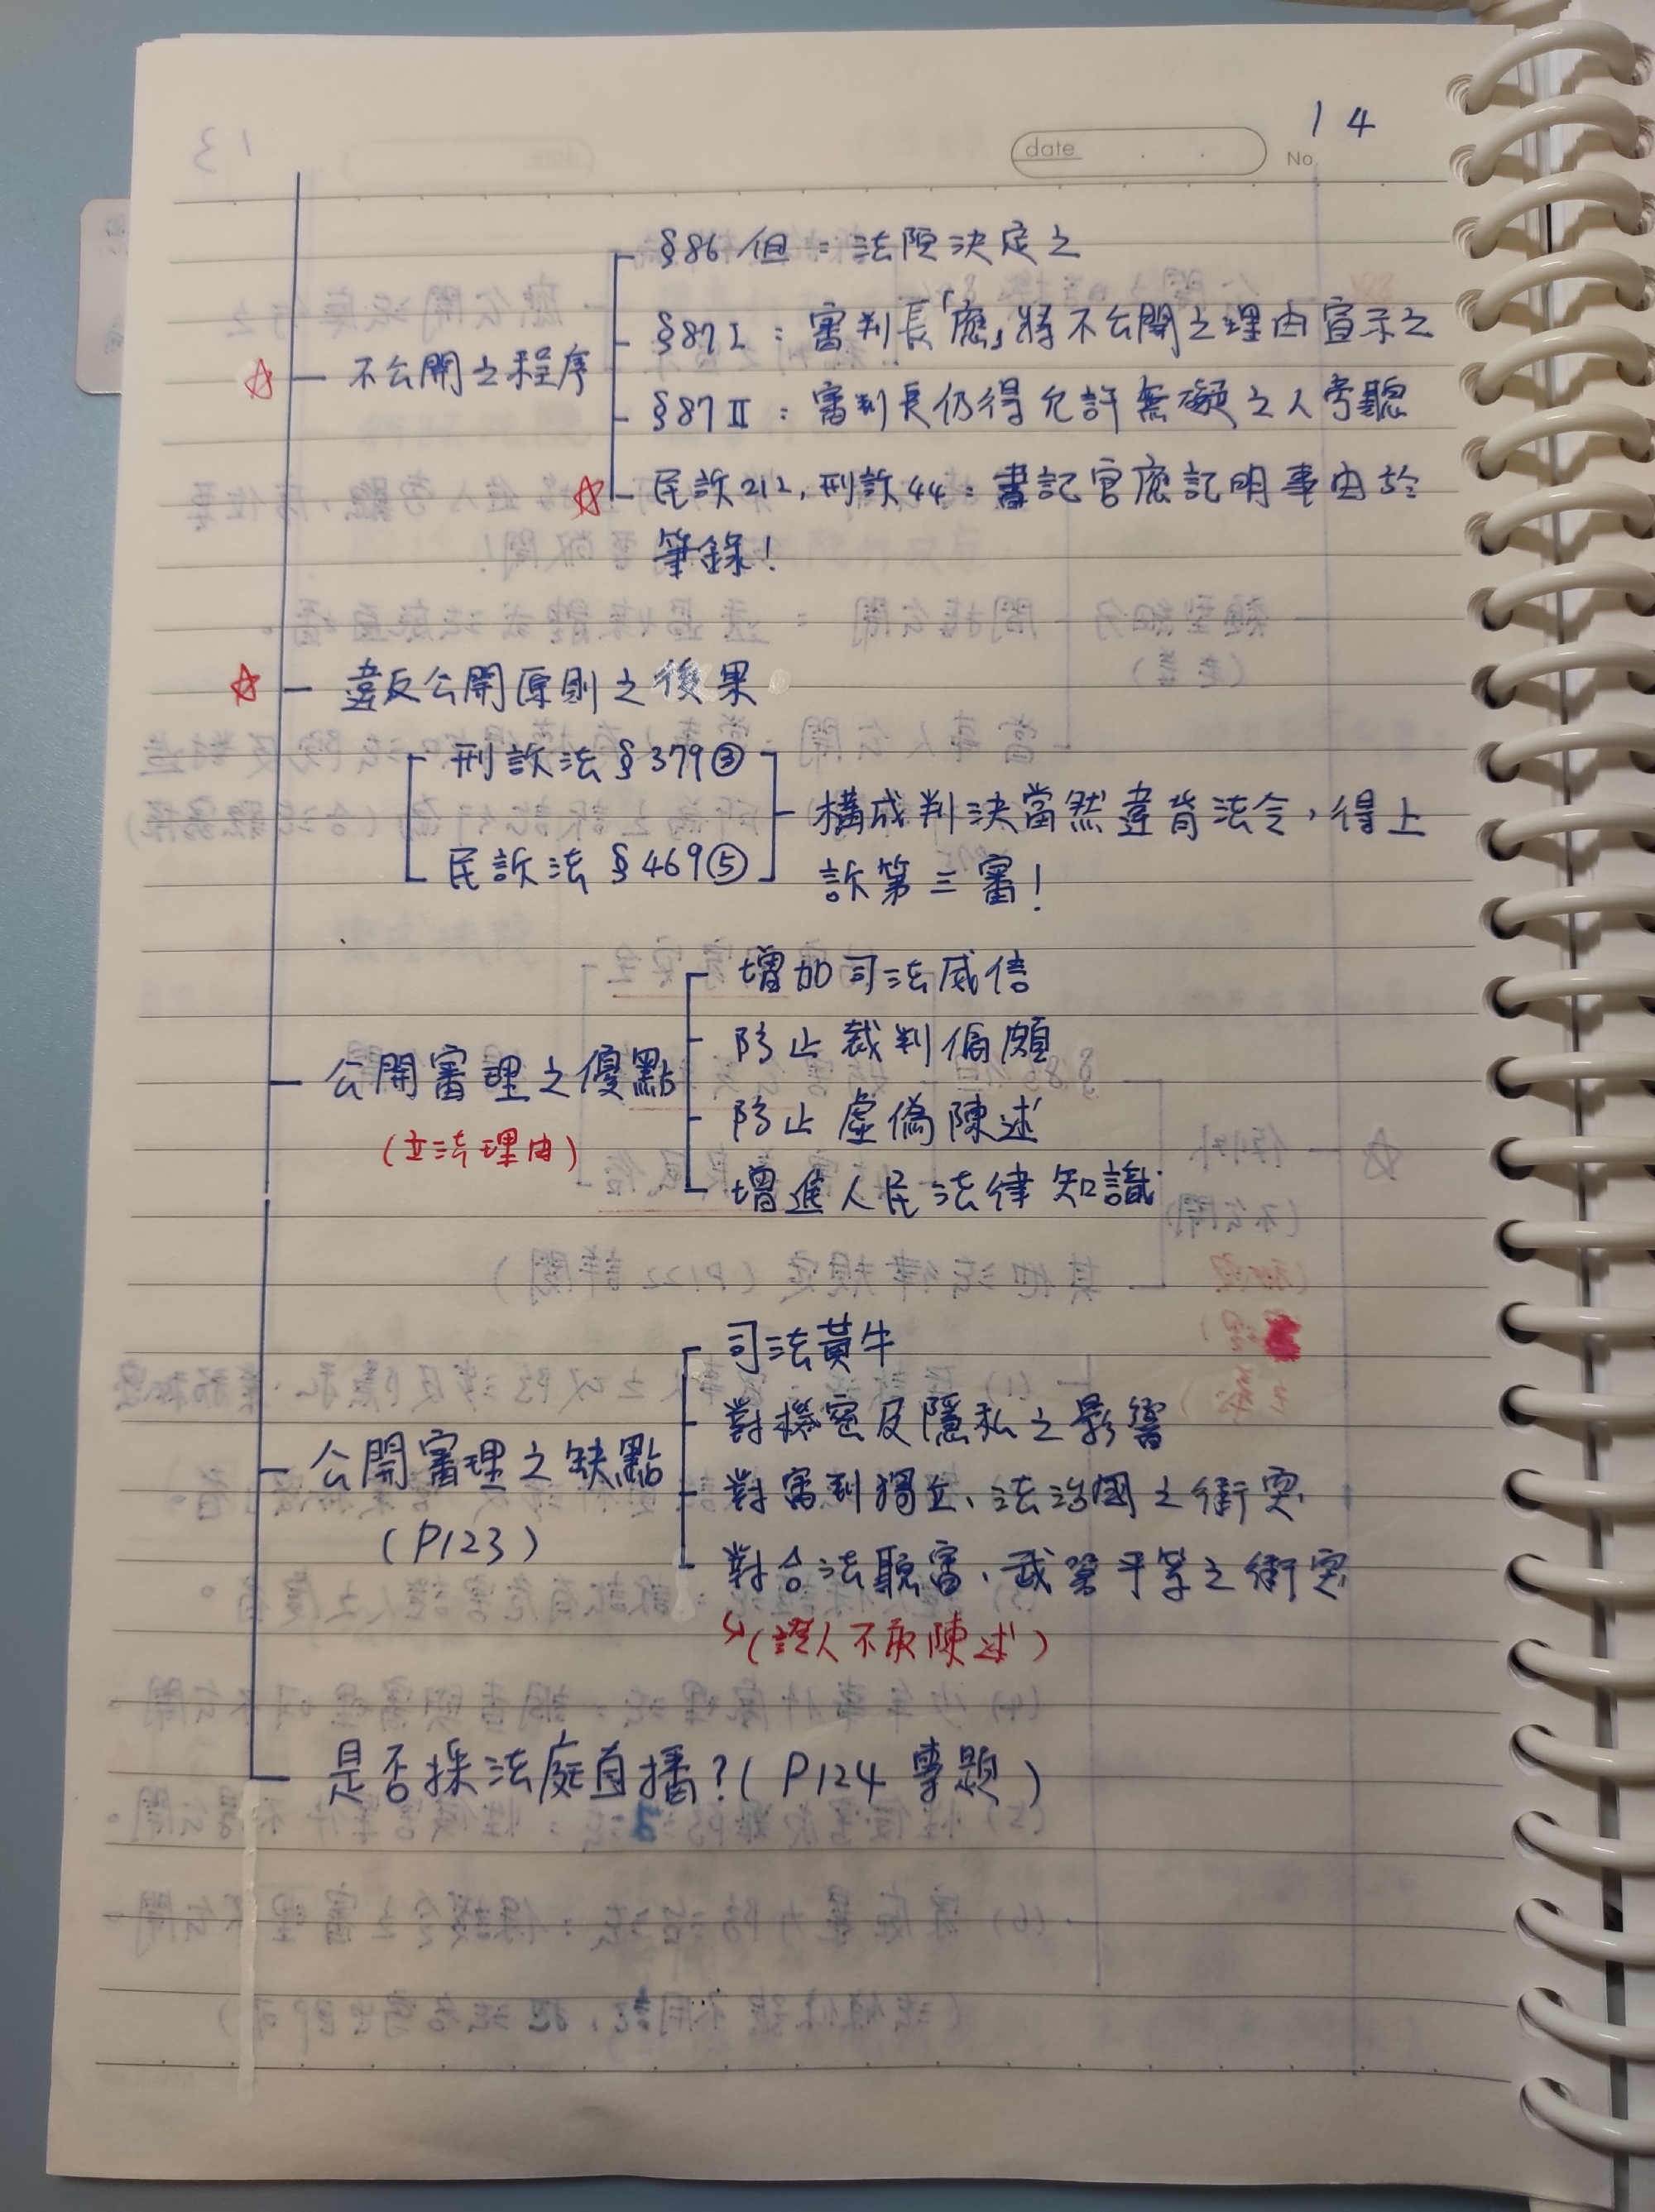 14
date
No.
§86但：法院決定之
§87 I：審判長「應」將不公開之理由宣示之
☆ 不公開之程序
§87 II：審判長仍得允許無礙之人旁聽
☆ 民訴212，刑訴44：書記官應記明事由於
筆錄！
☆ 違反公開原則之後果
刑訴法§379③
構成判決當然違背法令，得上
民訴法§469⑤
訴第三審！
增加司法威信
防止裁判偏頗
公開審理之優點
防止虛偽陳述
(立法理由)
增進人民法律知識
司法黃牛
對機密及隱私之影響
公開審理之缺點
對審判獨立、法治國之衝突
(P123)
對合法聽審、武器平等之衝突
↳(證人不敢陳述)
是否採法庭直播？(P124 專題)